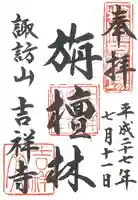 奉拝
平成二十七年
七月十一日
旃檀林
諏訪山
吉祥寺